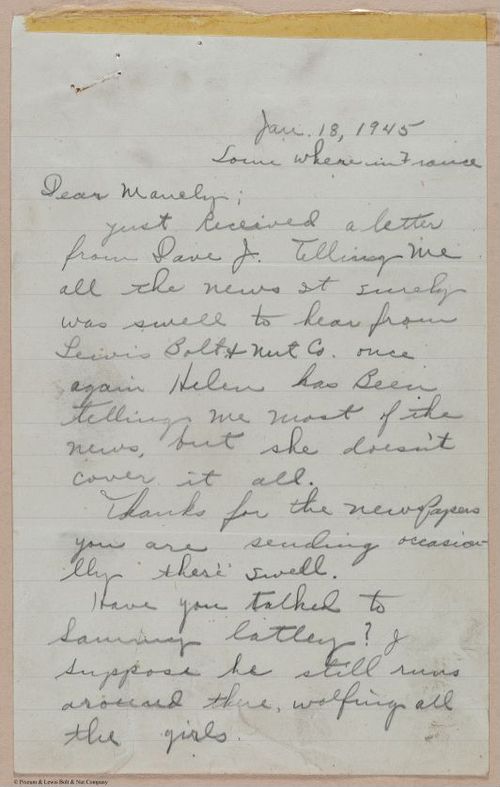 Jan. 18, 1945
Some where in France
Dear Manely;
Just Received a letter
from Dave J. Telling Me
all the news It surely
was swell to hear from
Lewis Bolt & Nut Co. once
again Helen has Been
telling me most of the
news, but she doesn't
cover it all.
Thanks for the newspapers
you are sending occasion
lly there's swell.
Have you talked to
Sammy latley? I
suppose he still runs
around there, wolfing all
the girls.
© Pozum & Lewis Bolt & Nut Company